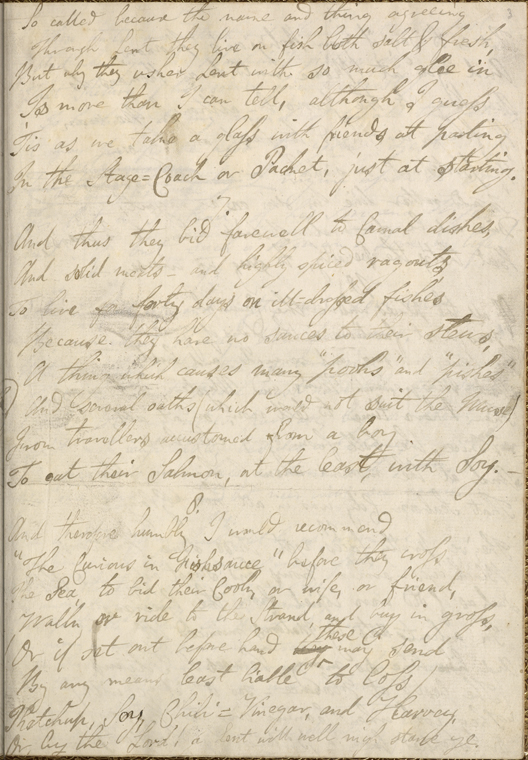 So called because the name and thing agreeing
Through Lent they live on fish both salt & fresh,
But why they usher Lent with so much glee in
Is more than I can tell, although I guess
'Tis as we take a glass with friends at parting
In the Stage=Coach or Packet, just at starting.
7.
And thus they bid farewell to Carnal dishes,
And solid meats – and highly spiced ragouts
To live for forty days on ill-dressed fishes
Because they have no sauces to their stews,
A thing which causes many "poohs" and "pishes"
And several oaths (which would not suit the Muse)
From travellers accustomed from a boy
To eat their Salmon, at the least, with Soy. –
8.
And therefore humbly I would recommend
"The Curious in Fishsauce" before they cross
The Sea to bid their Cook, or wife, or friend,
Walk or ride to the Strand, and buy in gross,
(Or if set out before hand these may send
By any means least liable to loss,
Ketchup, Soy, Chili=Vinegar, and Harvey,
Or by the Lord! a Lent will well nigh starve ye.